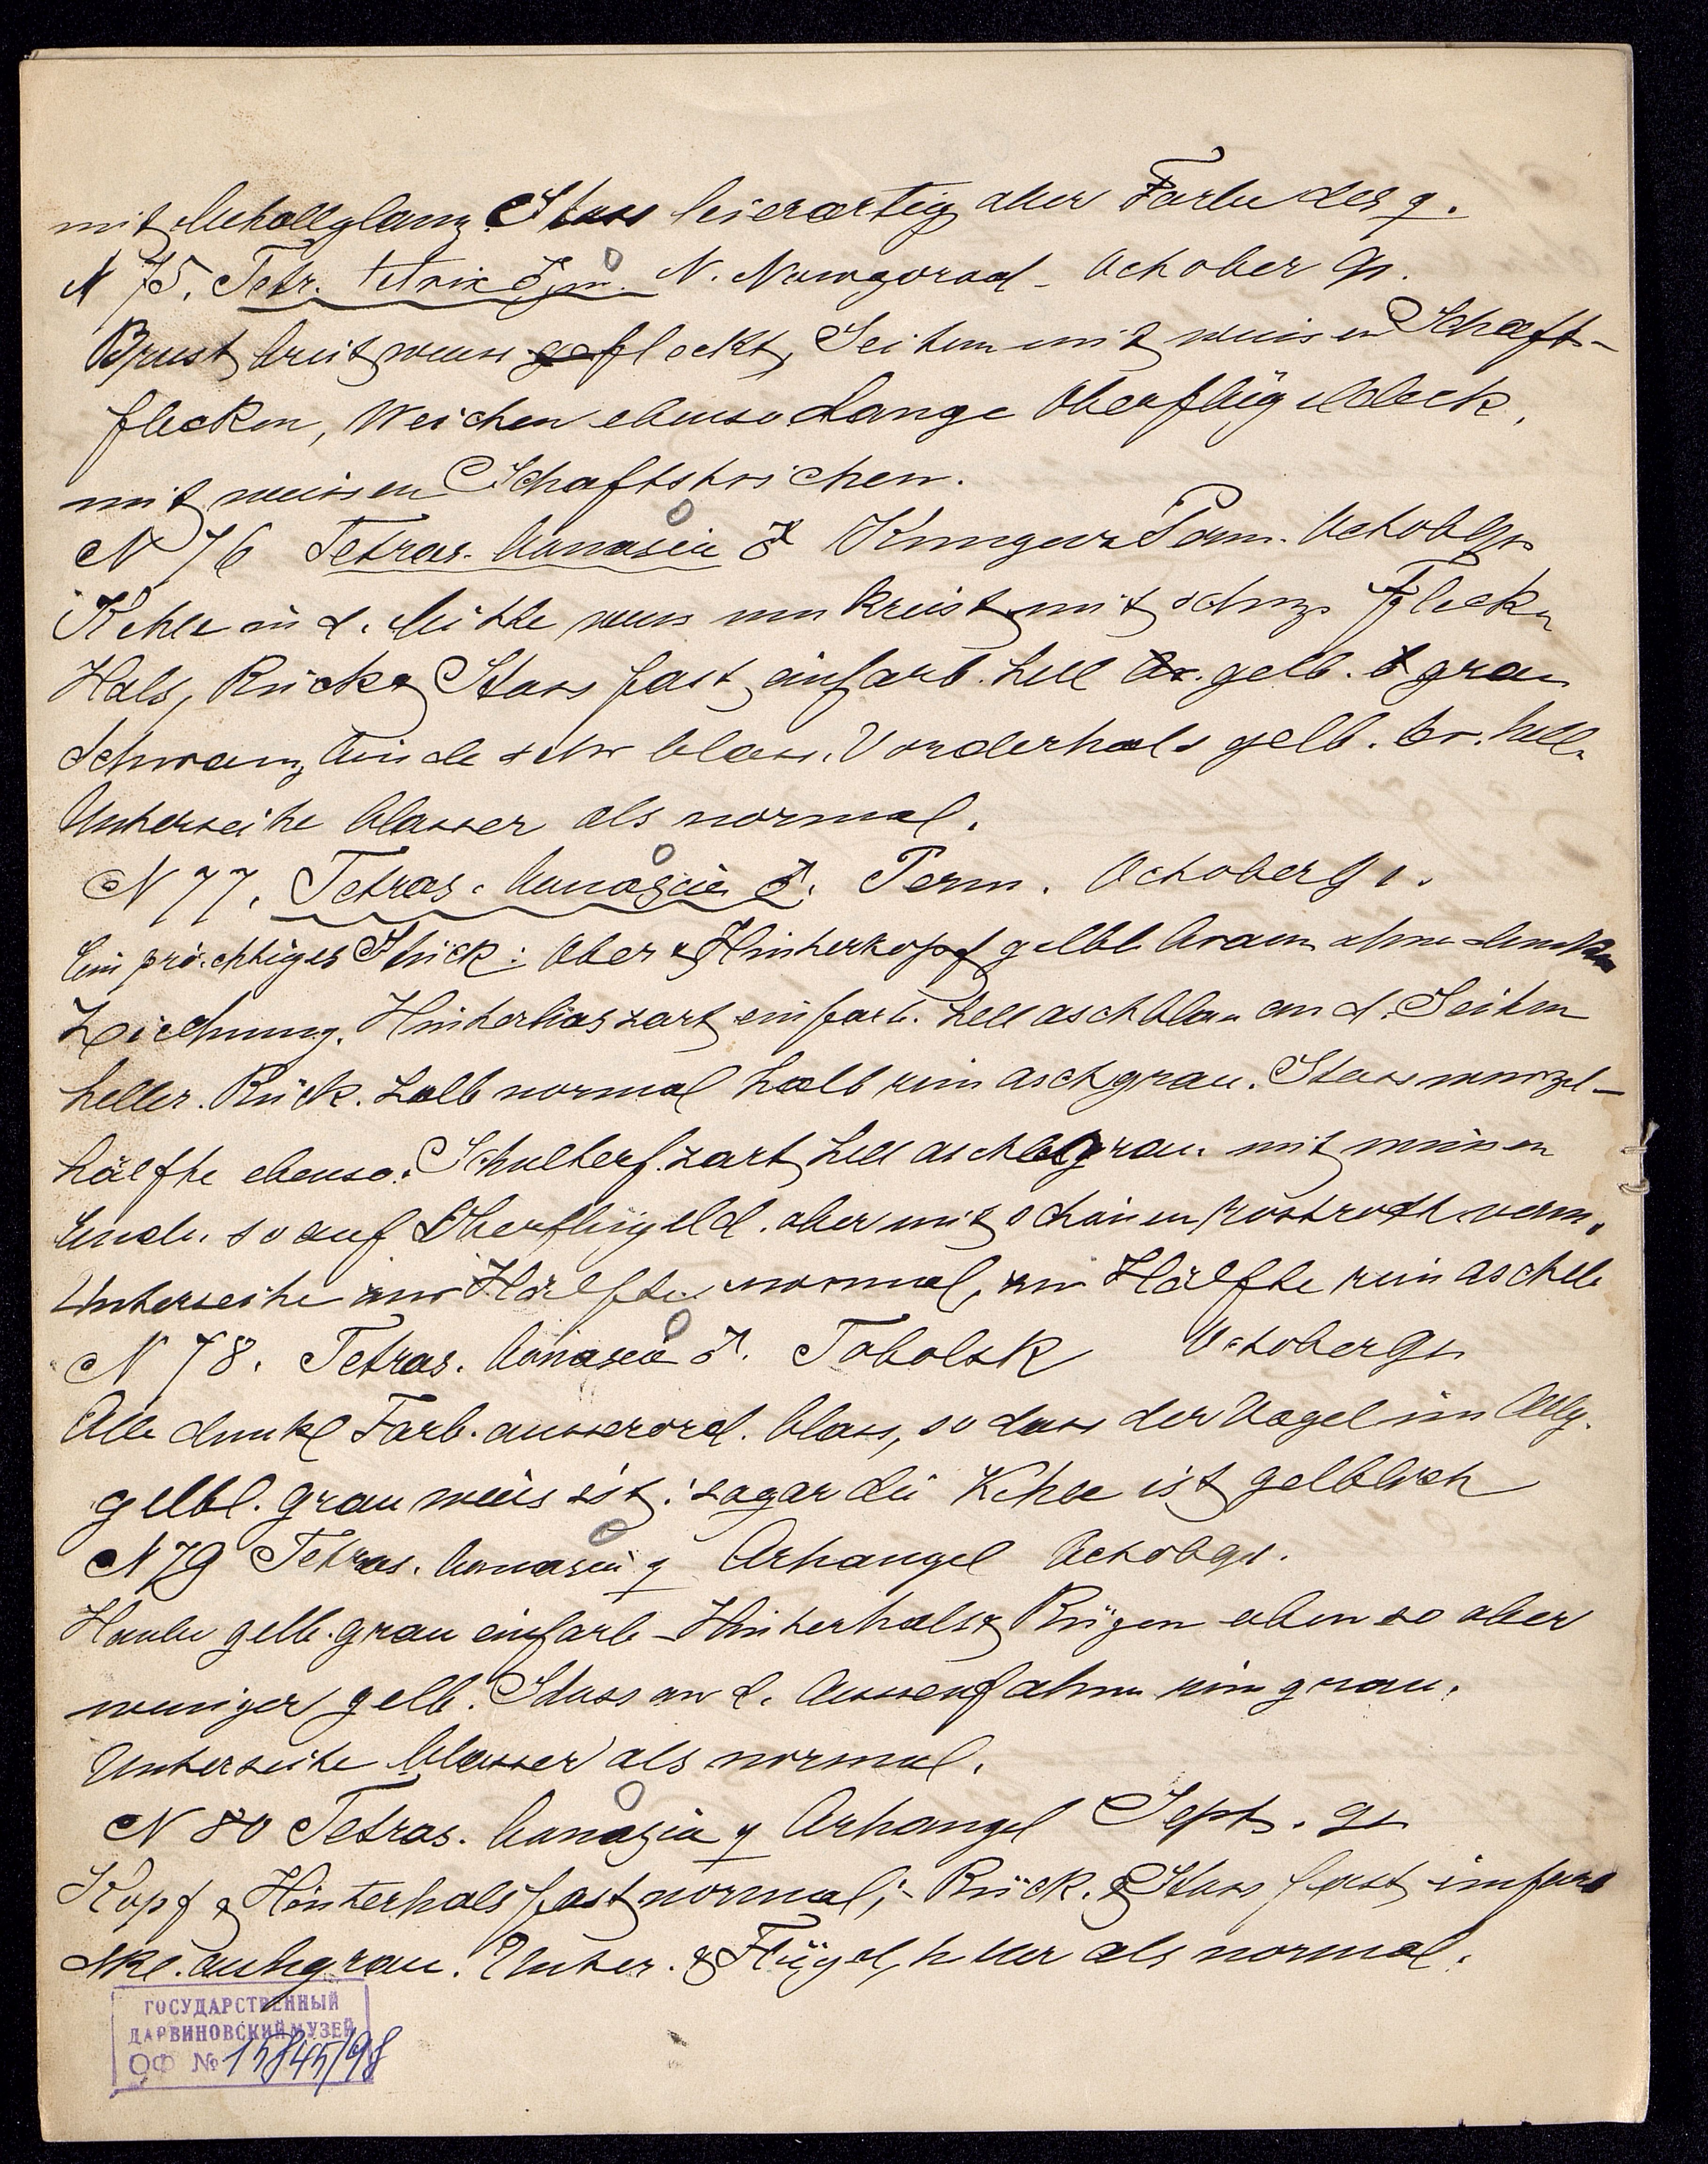 mit Metallglanz. Stoss leierartig aber Farbe des ♀.
N 75. Tetr. tetrix ♂ N. Nowgorod - October 91.
Brust breit weiss gefleckt, Seiten mit weissen Schaft-
flecken, Weichen ebenso Lange Oberflügeldeck.
mit weissen Schaftstrichen.
N 76 Tetras. bonasia ♂ Kungur Perm. Octob 91
Kehle in d. Mitte weiss umkreist mit schwz Fleck
Hals, Rück & Stoss fast einfarb. hell gelb. grau
Schwanzbinde sehr blass. Vorderhals gelb. br. hell
Unterseite blasser als normal.
N 77. Tetras. bonasia ♂. Perm. October 91.
Ein prächtiges Stück: Ober & Hinterkopf gelbl braun ohne dunkle
Zeichnung. Hinterhals zart einfarb. hell aschblau an d. Seiten
heller. Rück. halb normal halb rein aschgrau. Stosswurzel-
hälfte ebenso. Schulterf. zart hell aschgrau mit weissen
Ende. so auf Oberflügeld. aber mit schönen rostroth verm.
Unterseite zur Hälfte normal, zur Hälfte rein aschbl
N 78. Tetras. bonasia ♂. Tobolsk October 91
Alle dunkl Farb. ausserord. blass, so dass der Vogel im Allg.
gelbl. grau weiss ist: sogar die Kehle ist gelblich
N 79 Tetras. bonasia ♀ Arhangel Octob 91.
Haube gelb. grau einfarb - Hinterhals & Rügen eben so aber
weniger gelb. Stoss an d. Aussenfahne rein grau.
Unterseite blasser als normal.
N 80 Tetras. bonasia ♀ Arhangel Sept. 91
Kopf & Hinterhals fast normal; Rück. & Stoss fast einfarb
dkl. aschgrau. Unter. & Flügel, heller als normal.
ГОСУДАРСТВЕННЫЙ
ДАРВИНОВСКИЙ МУЗЕЙ
ОФ № 15845/98